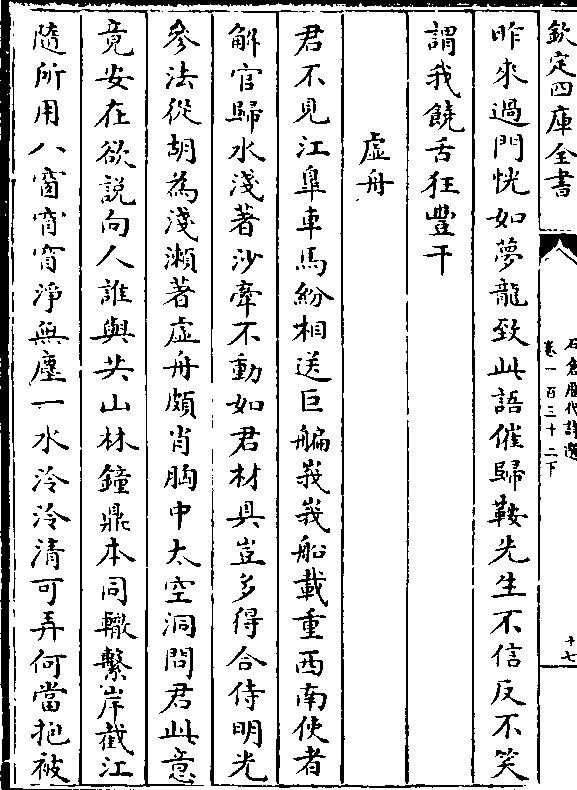 欽定四庫全書
石倉歷代詩選
卷一百三十二下
十七
昨來過門恍如夢龍致此語催歸鞍先生不信反不笑
謂我饒舌狂豐干
虛舟
君不見江臯車馬紛相送巨艑峩峩船載重西南使者
解官歸水淺著沙牽不動如君材具豈多得合侍明光
參法從胡為淺瀬著虛舟頗肖胸中太空洞問君此意
竟安在欲説向人誰與共山林鐘鼎本同轍繫岸截江
隨所用八窗窗窗淨無塵一水泠泠清可弄何當抱被